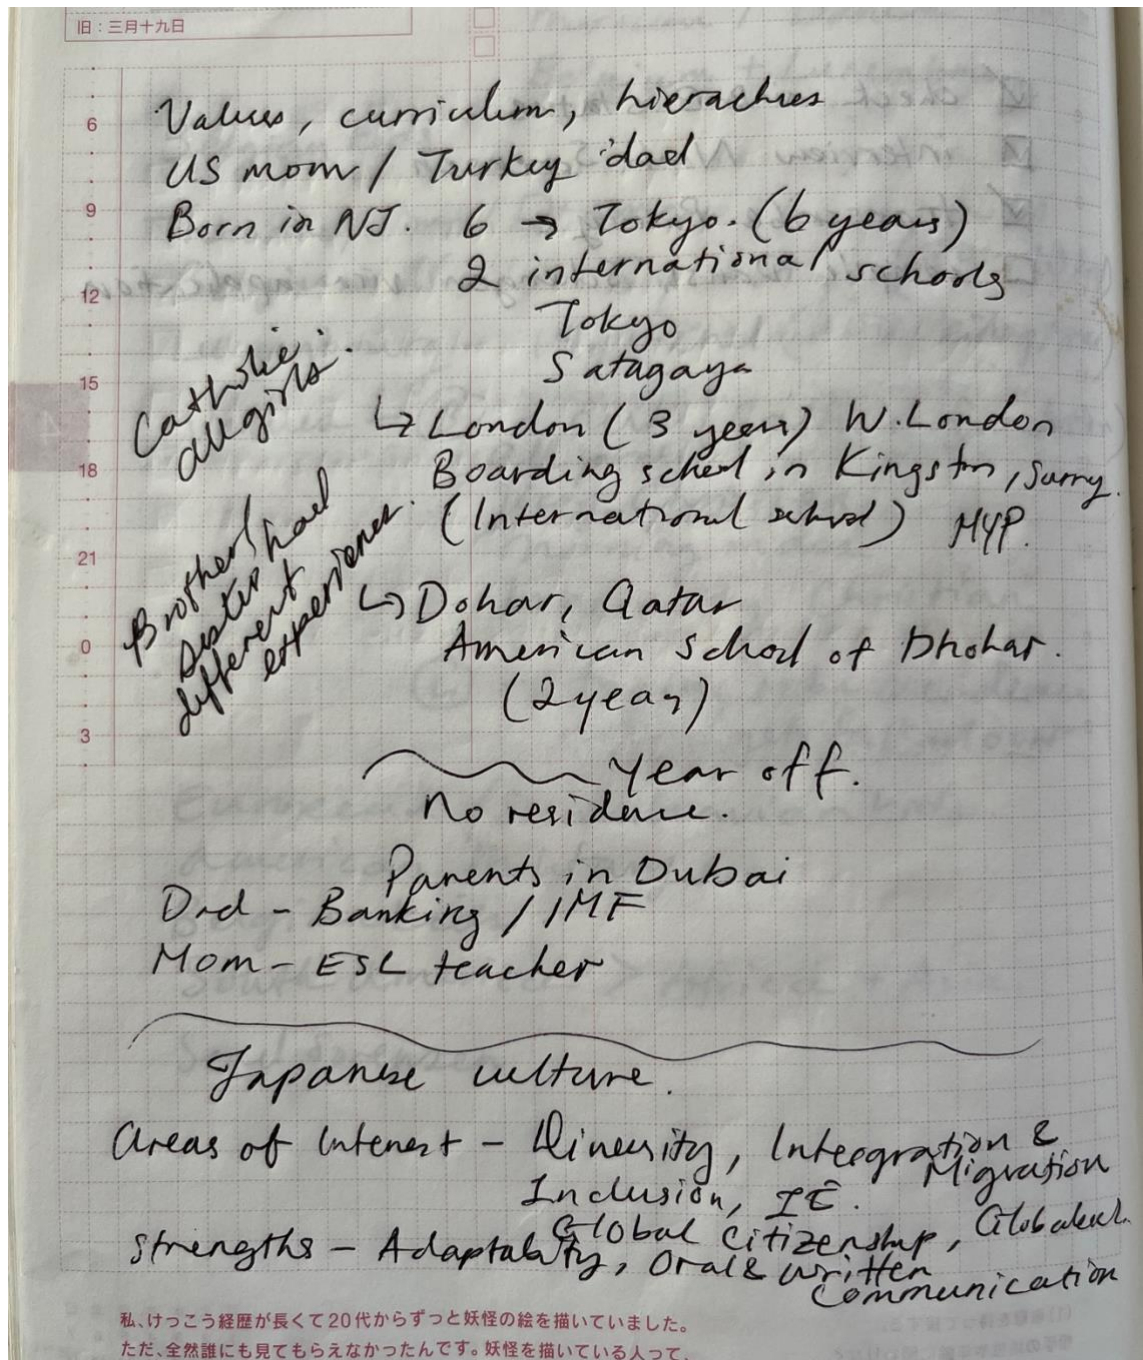 旧：三月十九日
Values, curriculum, hierachies
6
US mom / Turkey dad
9
Born in NJ. 6 → Tokyo. (6 years)
2 international schools
12
Tokyo
Satagaya
15
Catholic
all girls.
↳ London (3 years) W. London
18
Boarding school in Kingston, Surry.
(International school) MYP.
21
Brother/
Sister had
different
experiences.
↳ Dohar, Qatar
0
American School of Dhohar.
(2 years)
3
Year off.
No residence.
Parents in Dubai
Dad - Banking / IMF
Mom - ESL teacher
Japanese culture.
Areas of Interest - Diversity, Intergration &
Migration
Inclusion, IE.
Global Citizenship,
Strengths - Adaptability, Oral & written
Communication
私、けっこう経歴が長くて20代からずっと妖怪の絵を描いていました。
ただ、全然誰にも見てもらえなかったんです。妖怪を描いている人って、